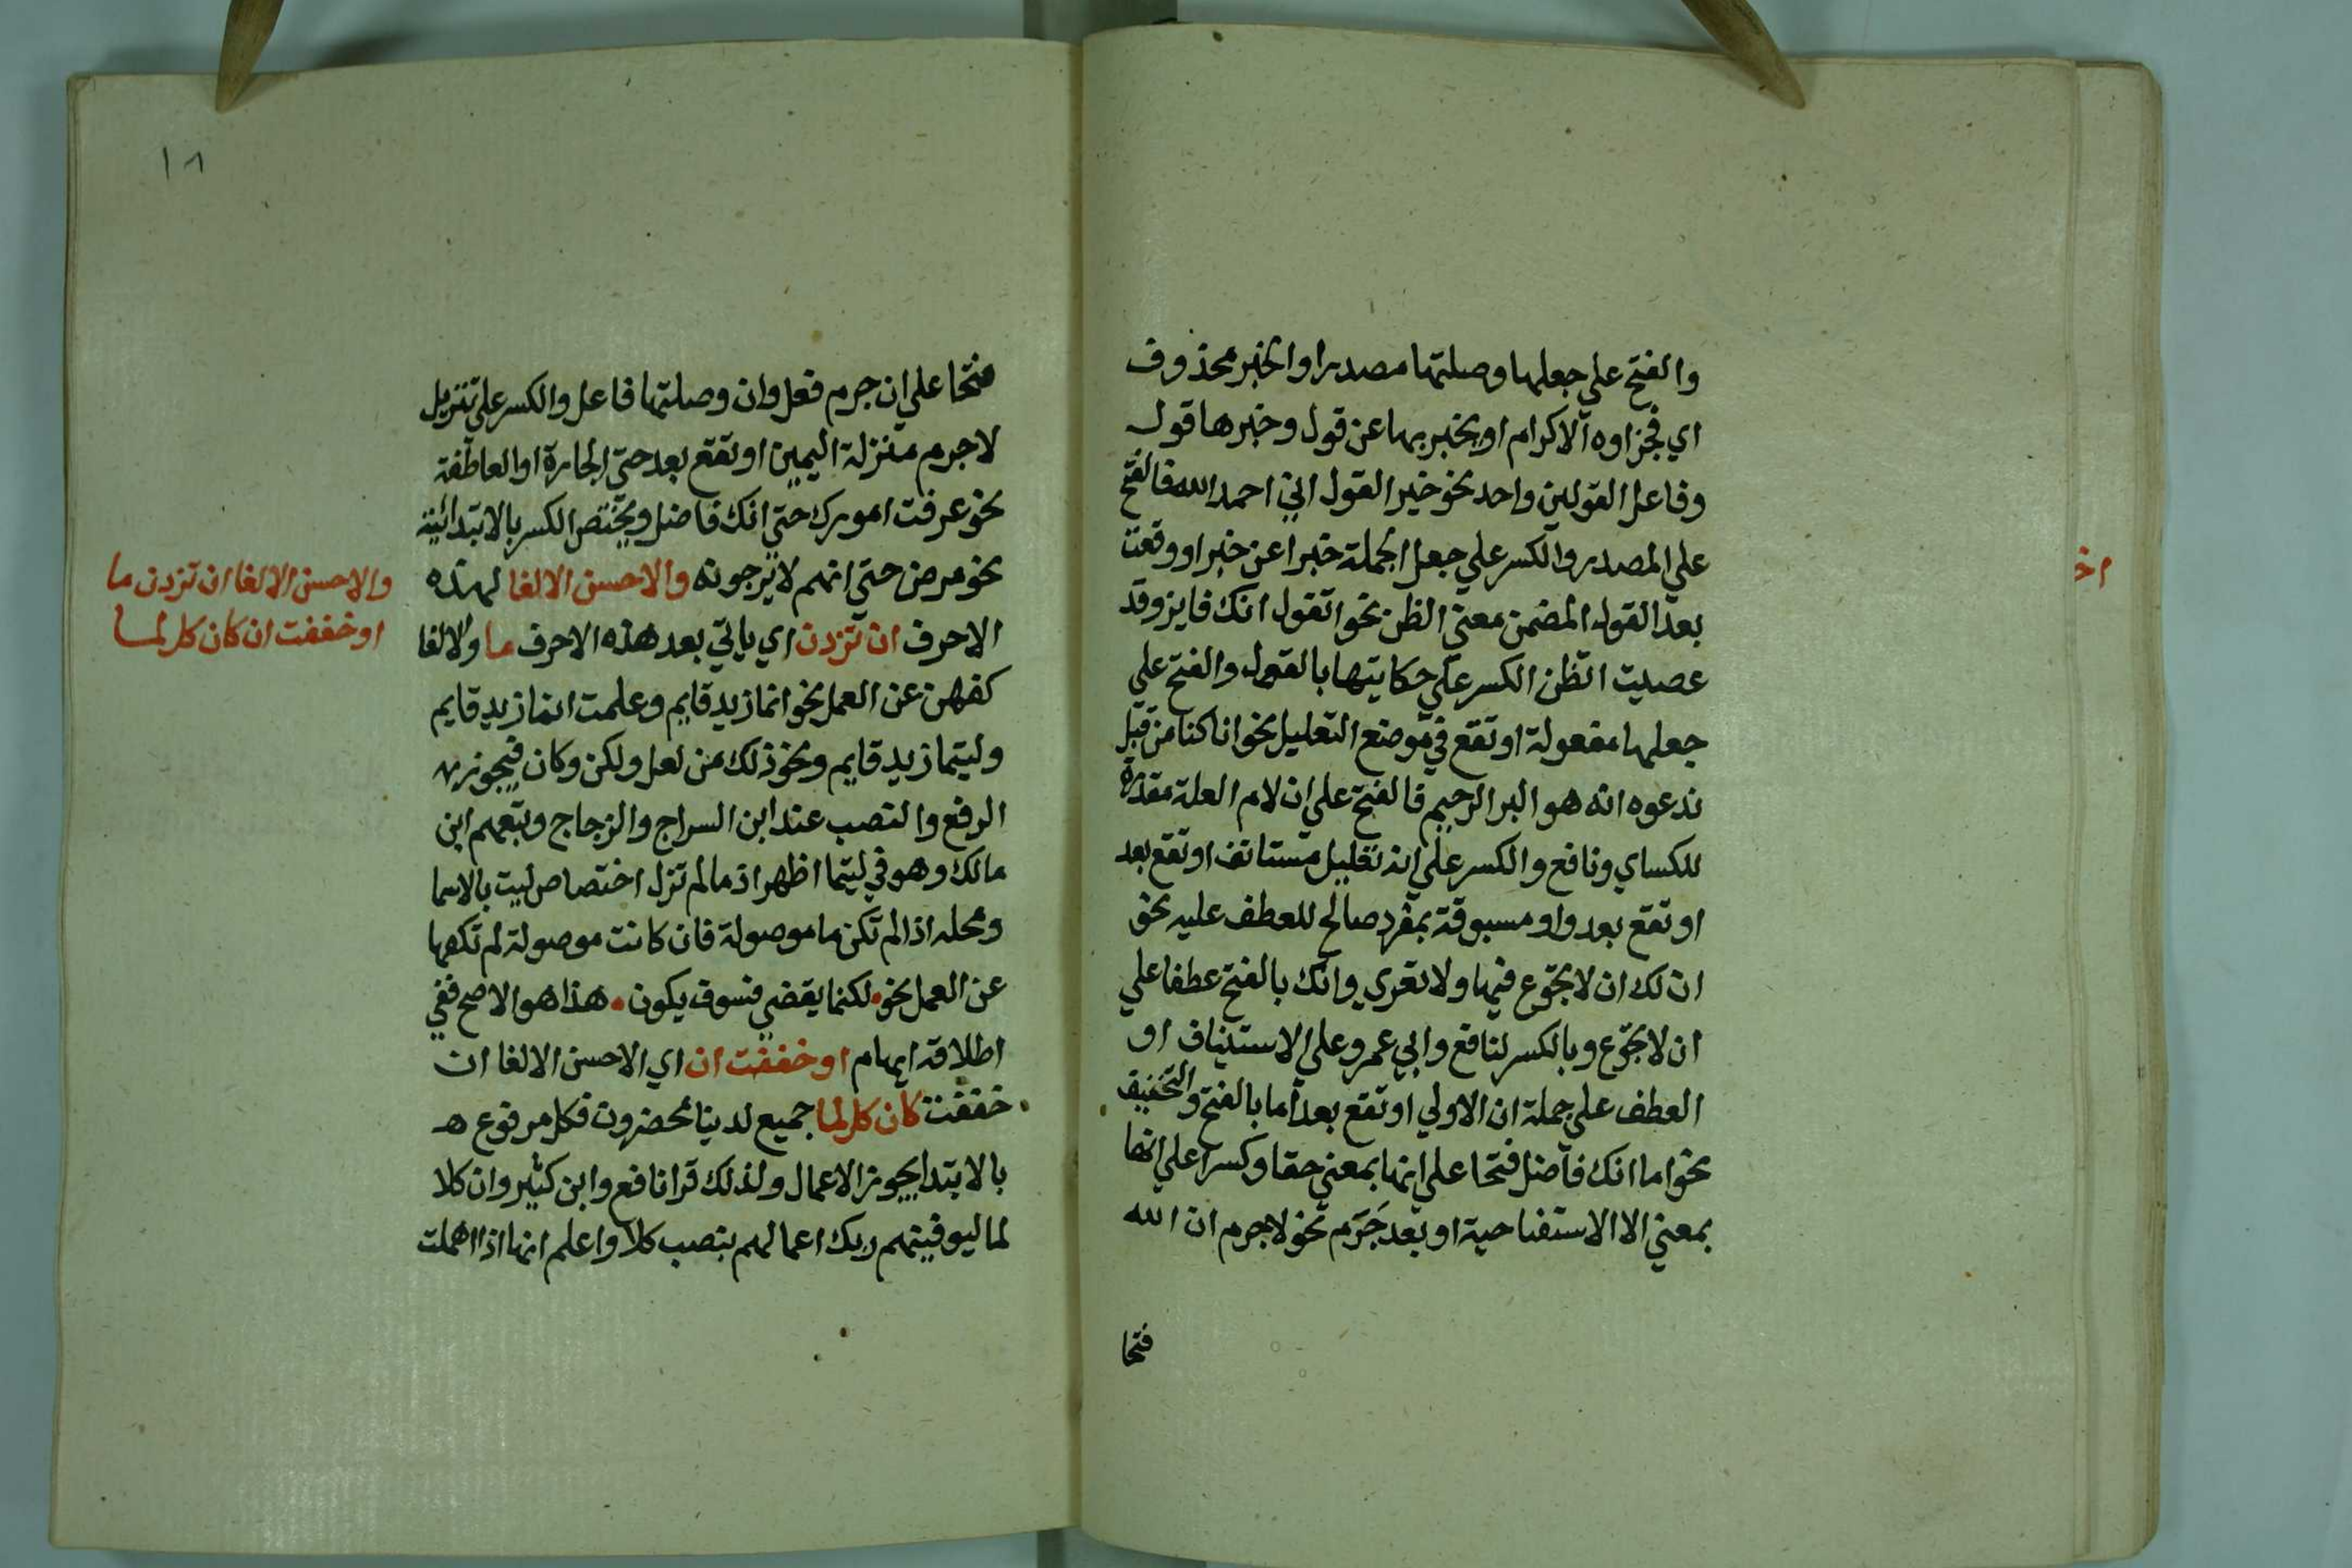 والفتح علي جعلها وصلتها مصدرا والخبر محذوف
اي فجزاوه الاكرام او يخبر بها عن قول وخبرها قول
وفاعل القولين واحد نحو خير القول اني احمد الله فالفتح
علي المصدر والكسر علي جعل الجملة خبرا عن خبر او وقعت
بعد القول المضمن معني الظن نحو اتقول انك فايز وقد
عصيت اتظن الكسر علي حكايتها بالقول والفتح علي
جعلها مفعولة او تقع في موضع التعليل نحو انا كنا من قبل
ندعوه انه هو البر الرحيم فالفتح علي ان لام العلة مقدرة
للكساي ونافع والكسر علي انه تعليل مستانف او تقع بعد
او تقع بعد واو مسبوقة بمفرد صالح للعطف عليه نحو
ان لك ان لا تجوع فيها ولا تعري وانك بالفتح عطفا علي
ان لا تجوع وبالكسر لنافع وابي عمرو علي الاستيناف او
العطف علي جملة ان الاولي او تقع بعد أما بالفتح والتخفيف
نحو اما انك فاضل فتحا علي انها بمعني حقا وكسرا علي انها
بمعني الا الاستفتاحية او بعد جَرَم نحو لا جرم ان الله
فتحا
اخ
١٨
فتحا علي ان جرم فعل وان وصلتها فاعل والكسر علي تنزيل
لا جرم منزلة اليمين او تقع بعد حتي الجارة او العاطفة
نحو عرفت امورك حتي انك فاضل ويختص الكسر بالابتدائية
نحو مرض حتي انهم لا يرجونه والاحسن الالغا لهذه
الاحرف ان تزدن اي ياتي بعد هذه الاحرف ما والالغا
كفهن عن العمل نحو انما زيد قايم وعلمت انما زيد قايم
وليتما زيد قايم ونحو ذلك من لعل ولكن وكان فيجوز
الرفع والنصب عند ابن السراج والزجاج وتبعهم ابن
مالك وهو في ليتما اظهر اذ ما لم تزل اختصاص ليت بالاسما
ومحله اذا لم تكن ما موصولة فان كانت موصولة لم تكفها
عن العمل نحو • لكنما يقضي فسوف يكون • هذا هو الاصح ففي
اطلاقه ايهام او خففت ان اي الاحسن الالغا ان
خففت كان كل لما جميع لدينا محضرون فكل مرفوع
بالابتدا يجوز الاعمال ولذلك قرا نافع وابن كثير وان كلا
لما ليوفينهم ربك اعمالهم بنصب كلا واعلم انها اذا اهملت
والاحسن الالغا ان تزدن ما
او خففت ان كان كل لما